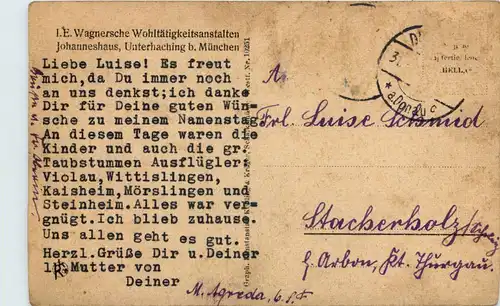 I.E. Wagnersche Wohltätigkeitsanstalten
Johanneshaus, Unterhaching b. München
Liebe Luise! Es freut
mich,da Du immer noch
an uns denkst;ich danke
Dir für Deine guten Wün-
sche zu meinem Namenstag.
An diesem Tage waren die
Kinder und auch die gr.
Taubstummen Ausflügler:
Violau,Wittislingen,
Kaisheim,Mörslingen und
Steinheim.Alles war ver-
gnügt.Ich blieb zuhause.
Uns allen geht es gut.
Herzl.Grüße Dir u.Deiner
lb.Mutter von
Deiner
M. Agreda,
An
Frl. Luise Schmid
Stackerholz/Schweiz
b. Arbon, Kt. Thurgau.
a.Donau